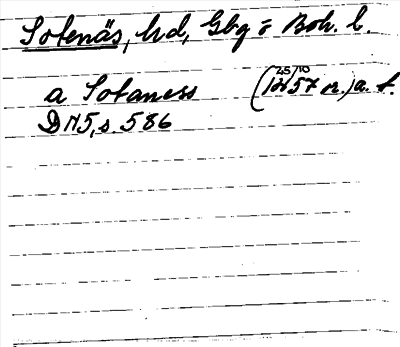 Sotenäs, hd, Gbg o Boh. l.
a Sotaness (25/10 1457 n.) a. f.
DN 5, s. 586